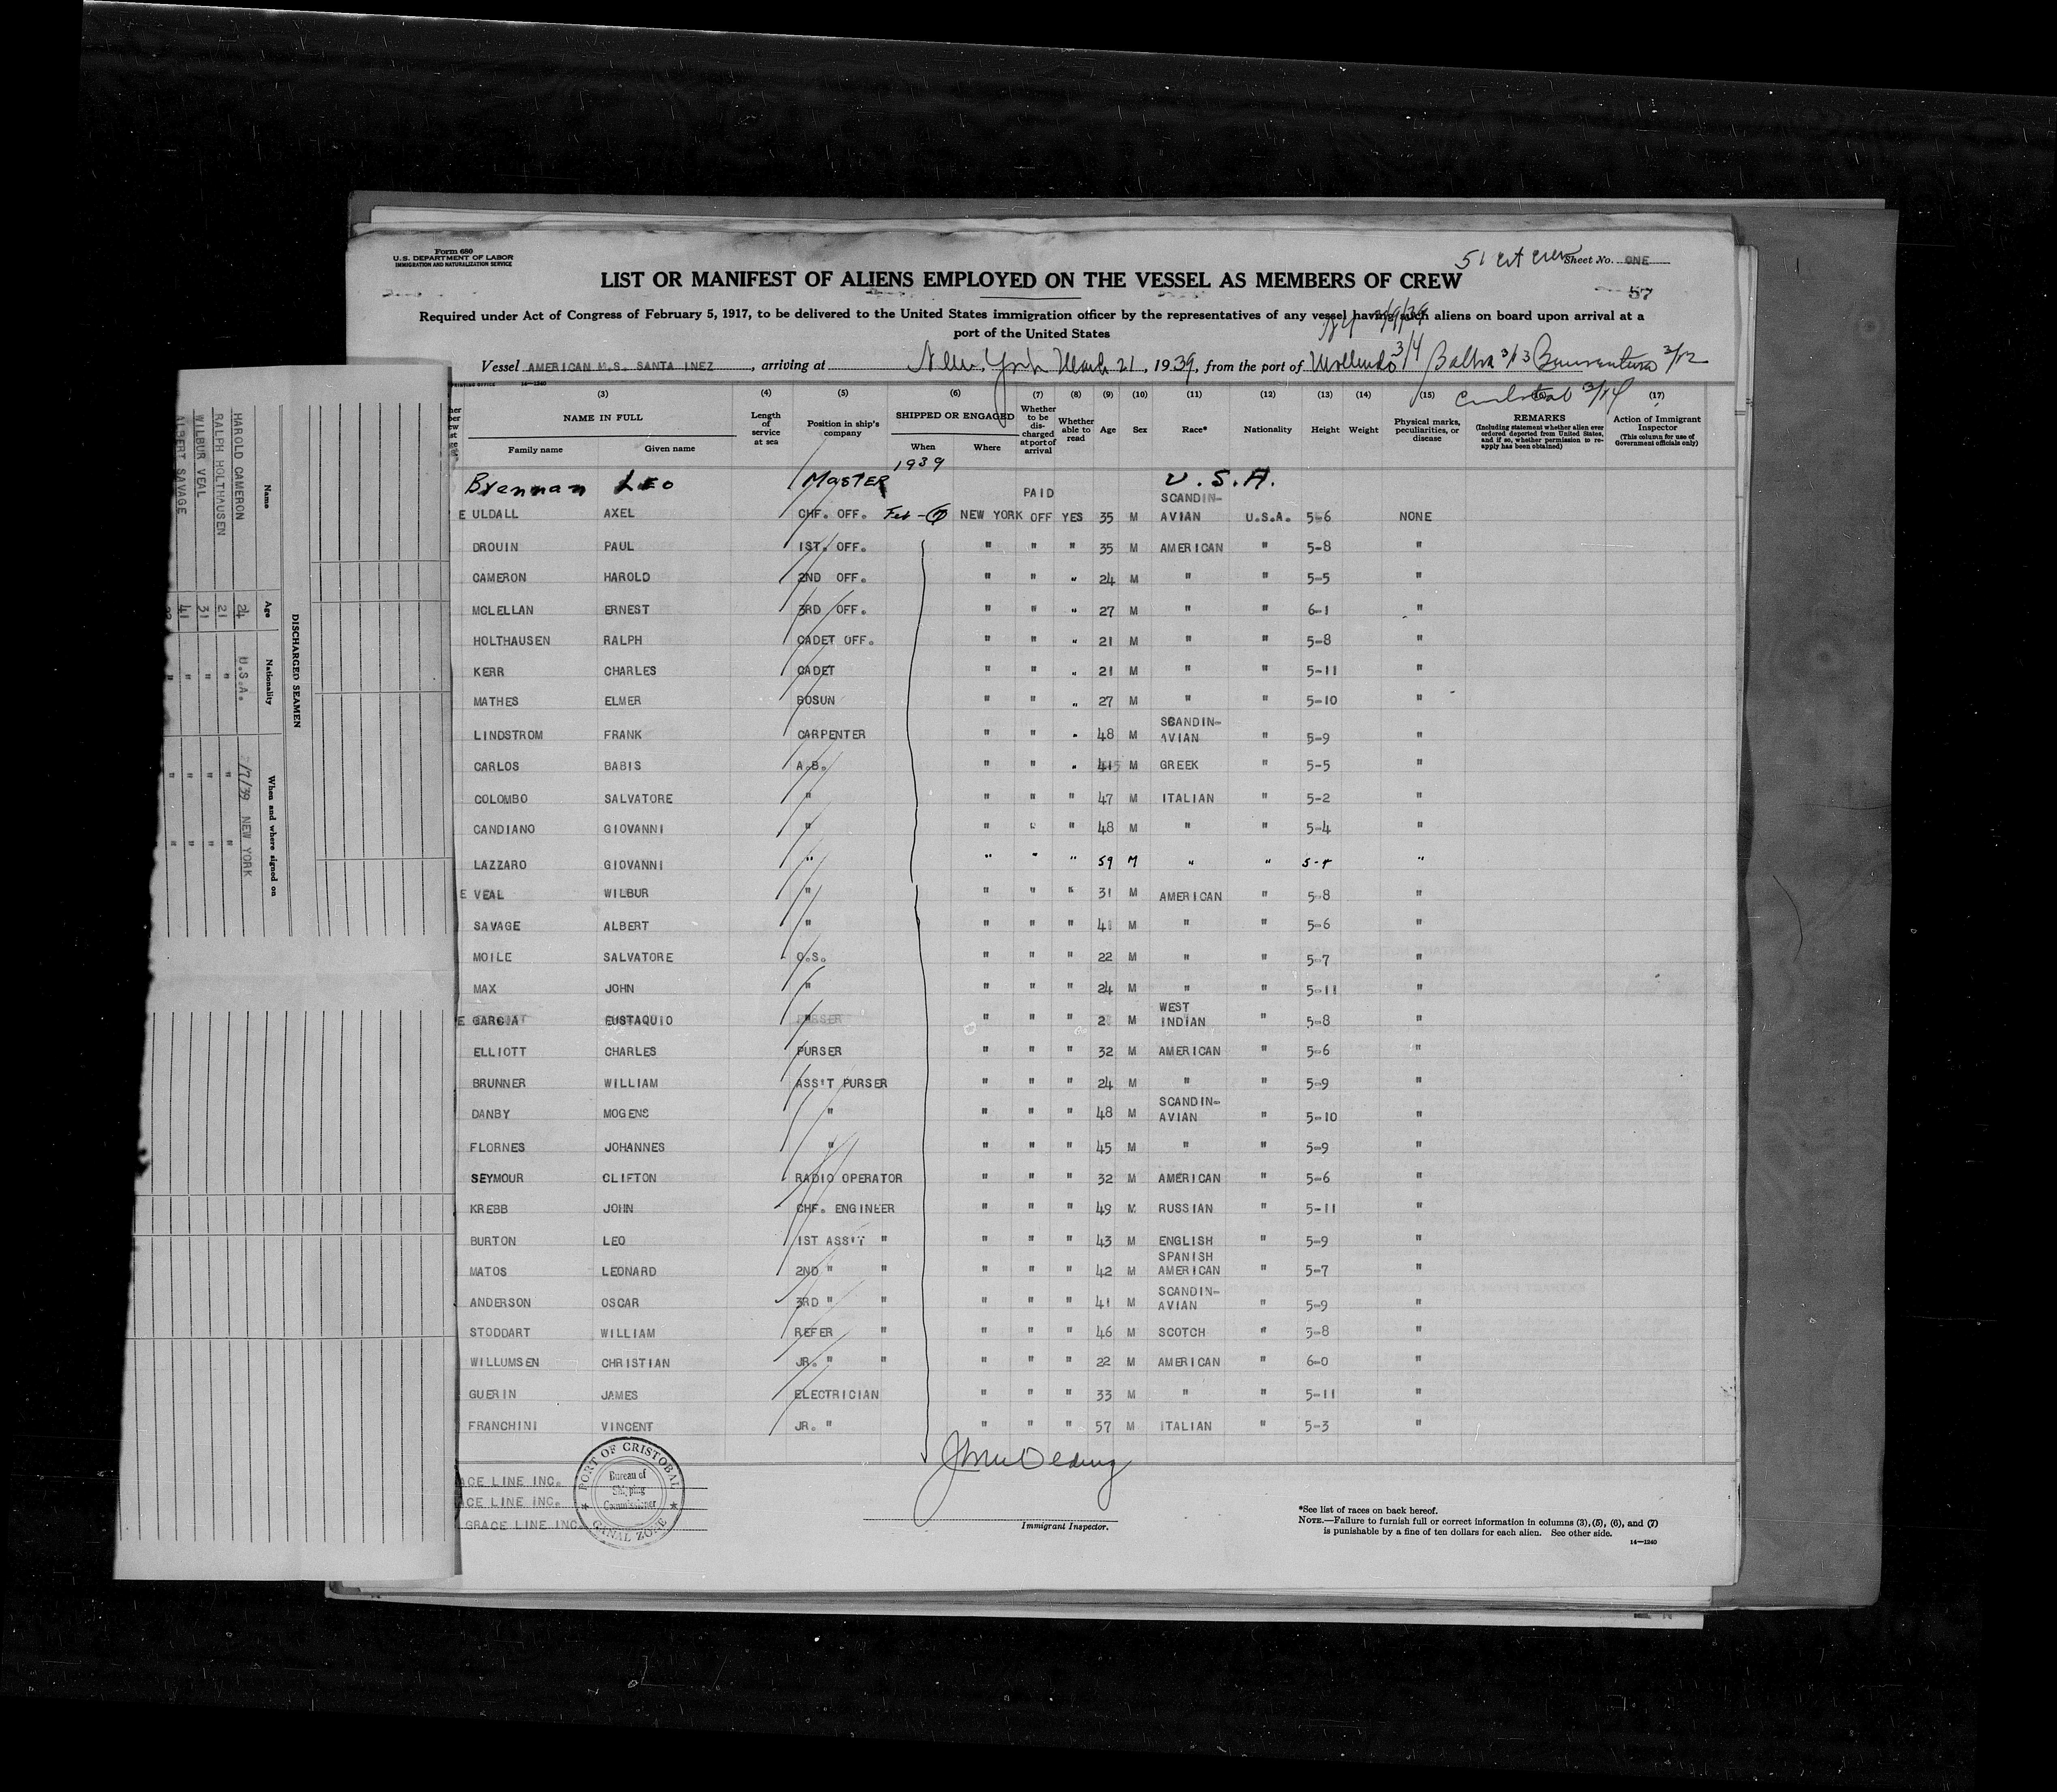 Form 680
U.S. DEPARTMENT OF LABOR
IMMIGRATION AND NATURALIZATION SERVICE
51 crew Sheet No. ONE
LIST OR MANIFEST OF ALIENS EMPLOYED ON THE VESSEL AS MEMBERS OF CREW
57
Required under Act of Congress of February 5, 1917, to be delivered to the United States immigration officer by the representatives of any vessel having such aliens on board upon arrival at a
port of the United States
Vessel AMERICAN M.S. SANTA INEZ, arriving at New York March 21, 1939, from the port of Mollendo 3/4 Balboa 3/13 Buenaventura 3/12
Cristobal 3/14
14—1240
(3) (4) (5) (6) (7) (8) (9) (10) (11) (12) (13) (14) (15) (17)
NAME IN FULL Length of service at sea Position in ship's company SHIPPED OR ENGAGED Whether to be discharged at port of arrival Whether able to read Age Sex Race* Nationality Height Weight Physical marks, peculiarities, or disease REMARKS (Including statement whether alien ever ordered deported from United States, and if so, whether permission to re-apply has been obtained) Action of Immigrant Inspector (This column for use of Government officials only)
Family name Given name When Where
1939
Brennan LEO MASTER U.S.A.
E ULDALL AXEL CHF. OFF. Feb - 7 NEW YORK PAID OFF YES 35 M SCANDIN-AVIAN U.S.A. 5-6 NONE
DROUIN PAUL 1ST. OFF. " " " 35 M AMERICAN " 5-8 "
CAMERON HAROLD 2ND OFF. " " " 24 M " " 5-5 "
MCLELLAN ERNEST 3RD OFF. " " " 27 M " " 6-1 "
HOLTHAUSEN RALPH CADET OFF. " " " 21 M " " 5-8 "
KERR CHARLES CADET " " " 21 M " " 5-11 "
MATHES ELMER BOSUN " " " 27 M " " 5-10 "
LINDSTROM FRANK CARPENTER " " " 48 M SCANDIN-AVIAN " 5-9 "
CARLOS BABIS A.B. " " " M GREEK " 5-5 "
COLOMBO SALVATORE " " " " 47 M ITALIAN " 5-2 "
CANDIANO GIOVANNI " " " " 48 M " " 5-4 "
LAZZARO GIOVANNI " " " " 59 M " " 5-4 "
E VEAL WILBUR " " " " 31 M AMERICAN " 5-8 "
SAVAGE ALBERT " " " " 41 M " " 5-6 "
MOILE SALVATORE O.S. " " " 22 M " " 5-7 "
MAX JOHN " " " " 24 M " " 5-11 "
E GARCIA EUSTAQUIO " " " " M WEST INDIAN " 5-8 "
ELLIOTT CHARLES PURSER " " " 32 M AMERICAN " 5-6 "
BRUNNER WILLIAM ASS'T PURSER " " " 24 M " " 5-9 "
DANBY MOGENS " " " " 48 M SCANDIN-AVIAN " 5-10 "
FLORNES JOHANNES " " " " 45 M " " 5-9 "
SEYMOUR CLIFTON RADIO OPERATOR " " " 32 M AMERICAN " 5-6 "
KREBB JOHN CHF. ENGINEER " " " 49 M RUSSIAN " 5-11 "
BURTON LEO 1ST ASS'T " " " " 43 M ENGLISH " 5-9 "
MATOS LEONARD 2ND " " " " " 42 M SPANISH AMERICAN " 5-7 "
ANDERSON OSCAR 3RD " " " " " 41 M SCANDIN-AVIAN " 5-9 "
STODDART WILLIAM REFER " " " " 46 M SCOTCH " 5-8 "
WILLUMSEN CHRISTIAN JR. " " " " " 22 M AMERICAN " 6-0 "
GUERIN JAMES ELECTRICIAN " " " 33 M " " 5-11 "
FRANCHINI VINCENT JR. " " " " 57 M ITALIAN " 5-3 "
ACE LINE INC.
ACE LINE INC.
GRACE LINE INC.
PORT OF CRISTOBAL
Bureau of
Shipping
Commissioner
CANAL ZONE
Immigrant Inspector.
*See list of races on back hereof.
NOTE.—Failure to furnish full or correct information in columns (3), (5), (6), and (7)
is punishable by a fine of ten dollars for each alien. See other side.
14—1240
DISCHARGED SEAMEN
Name Age Nationality When and where signed on
HAROLD CAMERON 24 U.S.A. 2/7/39 NEW YORK
RALPH HOLTHAUSEN 21 " " "
WILBUR VEAL 31 " " "
ALBERT SAVAGE 41 " " "